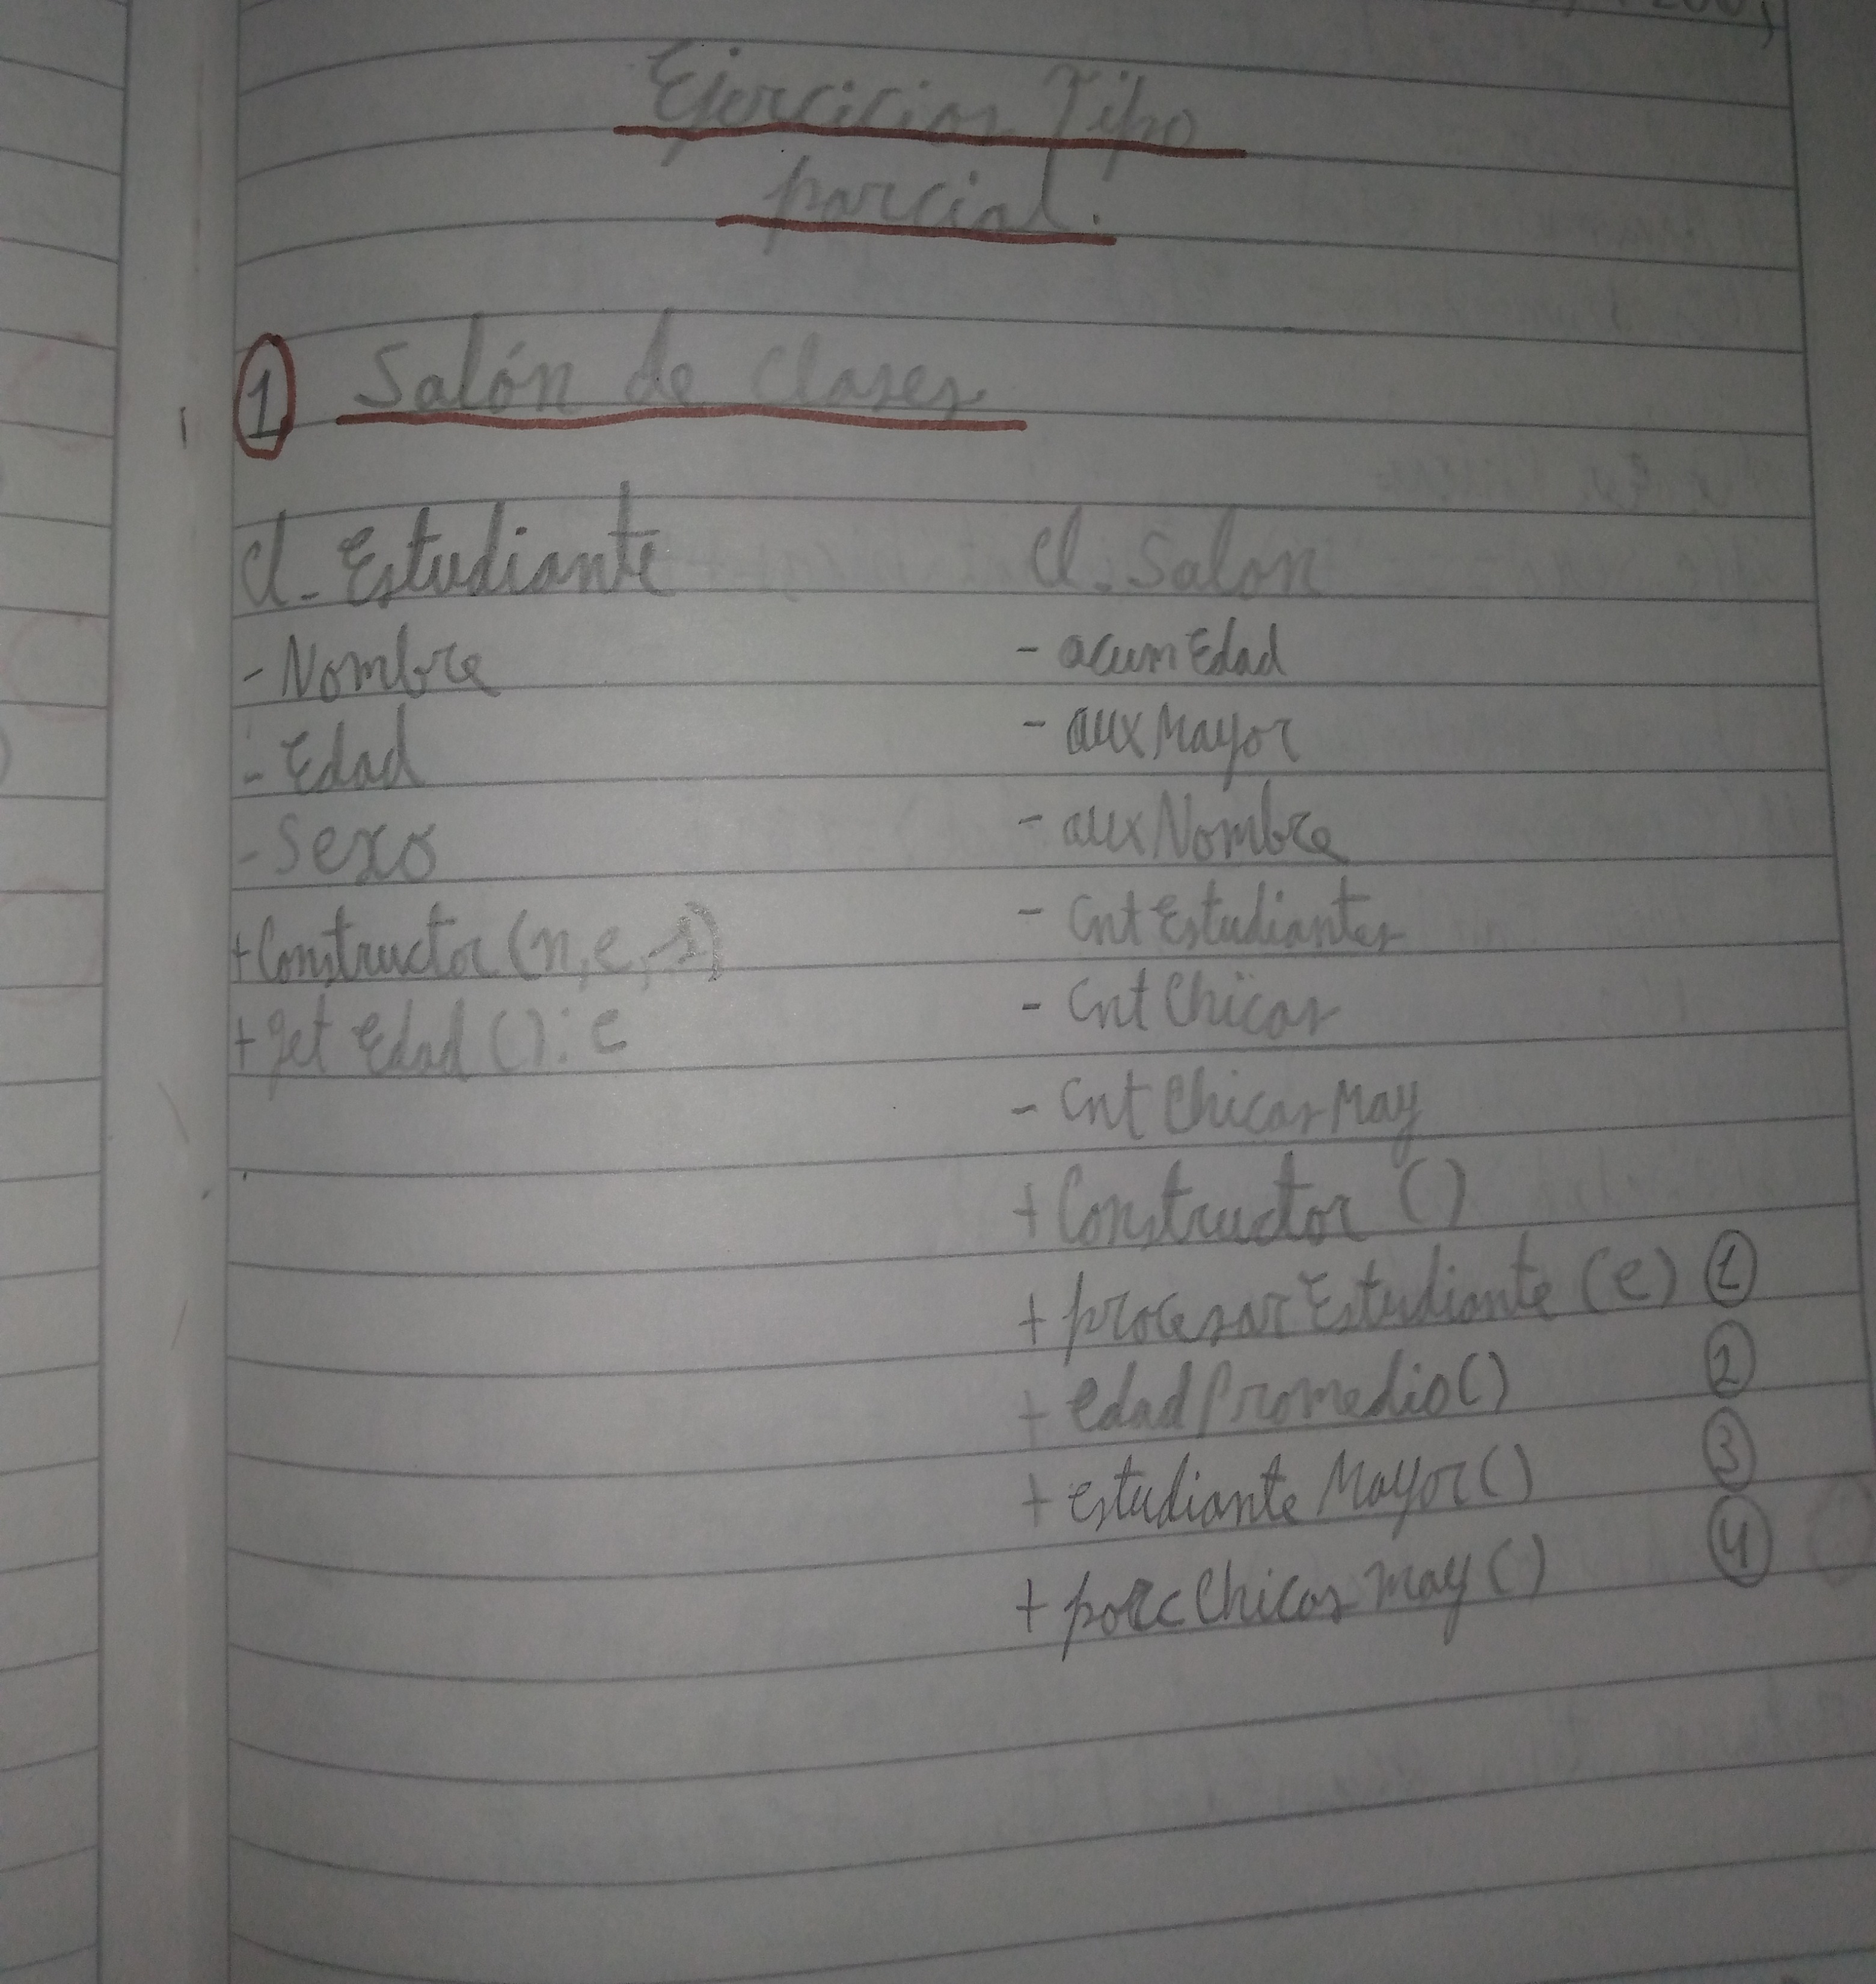 Ejercicios Tipo
parcial.
1 Salón de Clases
Cl. Estudiante
- Nombre
- Edad
- Sexo
+ Constructor (n, e, s)
+ get Edad (): e
Cl. Salon
- acumEdad
- auxMayor
- auxNombre
- CntEstudiantes
- CntChicas
- CntChicasMay
+ Constructor ()
+ procesarEstudiante (e) 1
+ edadPromedio() 2
+ estudianteMayor() 3
+ porcChicasMay() 4